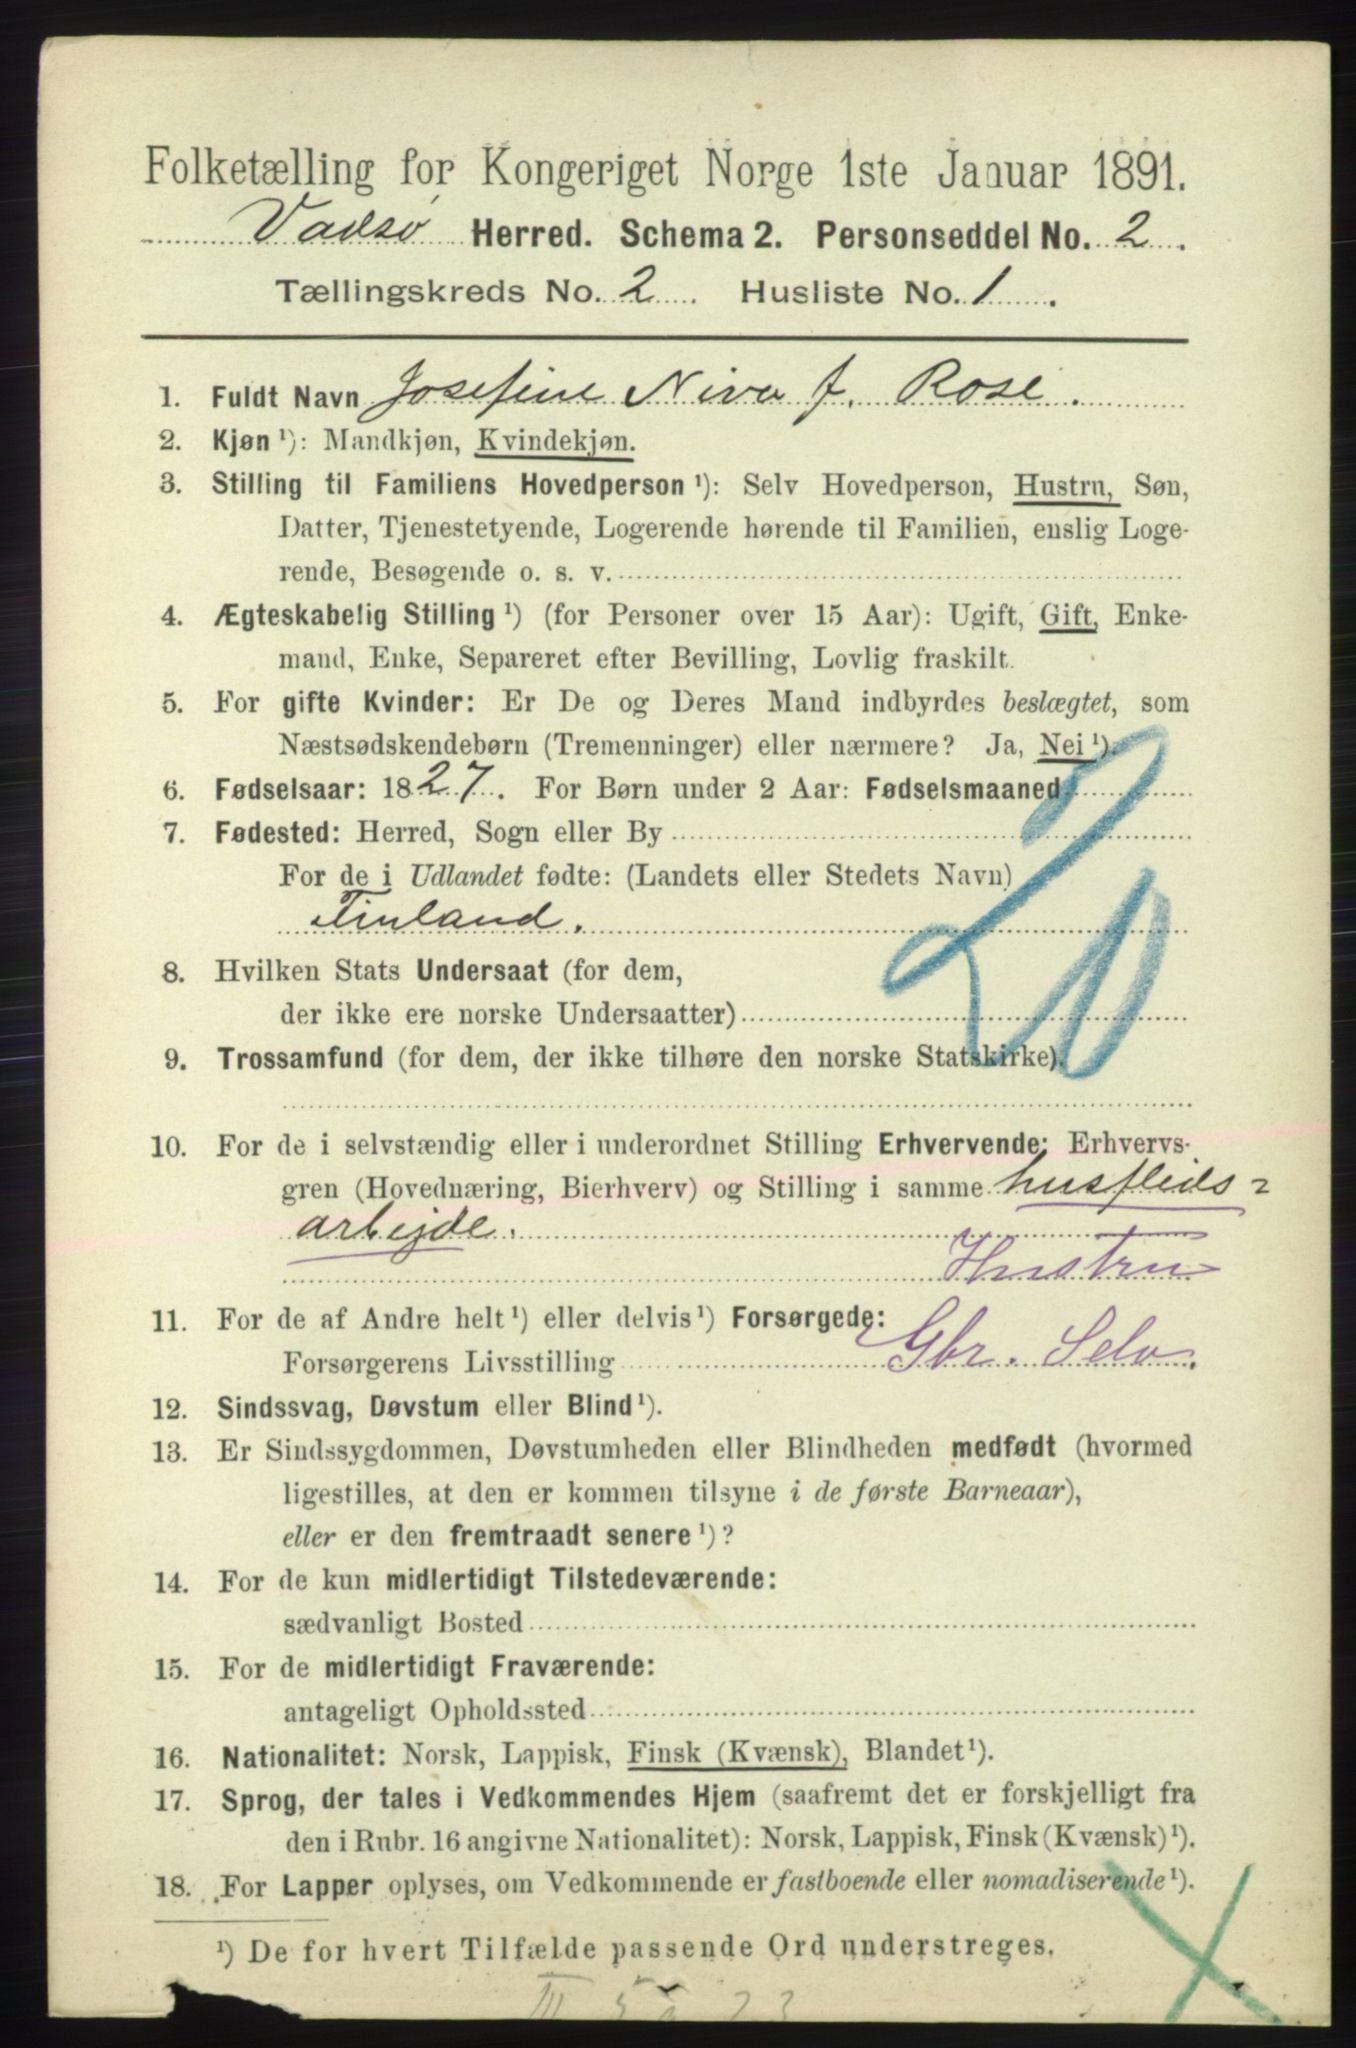 Folketælling for Kongeriget Norge 1ste Januar 1891.
Vadsø Herred. Schema 2. Personseddel No. 2.
Tællingskreds No. 2. Husliste No. 1.
1. Fuldt Navn Josefine Niva f. Rose.
2. Kjøn ¹): Mandkjøn, Kvindekjøn.
3. Stilling til Familiens Hovedperson ¹): Selv Hovedperson, Hustru, Søn,
Datter, Tjenestetyende, Logerende hørende til Familien, enslig Loge-
rende, Besøgende o. s. v.
4. Ægteskabelig Stilling ¹) (for Personer over 15 Aar): Ugift, Gift, Enke-
mand, Enke, Separeret efter Bevilling, Lovlig fraskilt.
5. For gifte Kvinder: Er De og Deres Mand indbyrdes beslægtet, som
Næstsødskendebørn (Tremenninger) eller nærmere? Ja, Nei ¹).
6. Fødselsaar: 1827. For Børn under 2 Aar: Fødselsmaaned
7. Fødested: Herred, Sogn eller By
For de i Udlandet fødte: (Landets eller Stedets Navn)
Finland.
20
8. Hvilken Stats Undersaat (for dem,
der ikke ere norske Undersaatter)
9. Trossamfund (for dem, der ikke tilhøre den norske Statskirke).
10. For de i selvstændig eller i underordnet Stilling Erhvervende: Erhvervs-
gren (Hovednæring, Bierhverv) og Stilling i samme husflids=
arbejde.
Hustru
11. For de af Andre helt ¹) eller delvis ¹) Forsørgede:
Forsørgerens Livsstilling Gbr. Selv.
12. Sindssvag, Døvstum eller Blind ¹).
13. Er Sindssygdommen, Døvstumheden eller Blindheden medfødt (hvormed
ligestilles, at den er kommen tilsyne i de første Barneaar),
eller er den fremtraadt senere ¹)?
14. For de kun midlertidigt Tilstedeværende:
sædvanligt Bosted
15. For de midlertidigt Fraværende:
antageligt Opholdssted
16. Nationalitet: Norsk, Lappisk, Finsk (Kvænsk), Blandet ¹).
17. Sprog, der tales i Vedkommendes Hjem (saafremt det er forskjelligt fra
den i Rubr. 16 angivne Nationalitet): Norsk, Lappisk, Finsk (Kvænsk) ¹).
18. For Lapper oplyses, om Vedkommende er fastboende eller nomadiserende ¹).
¹) De for hvert Tilfælde passende Ord understreges.